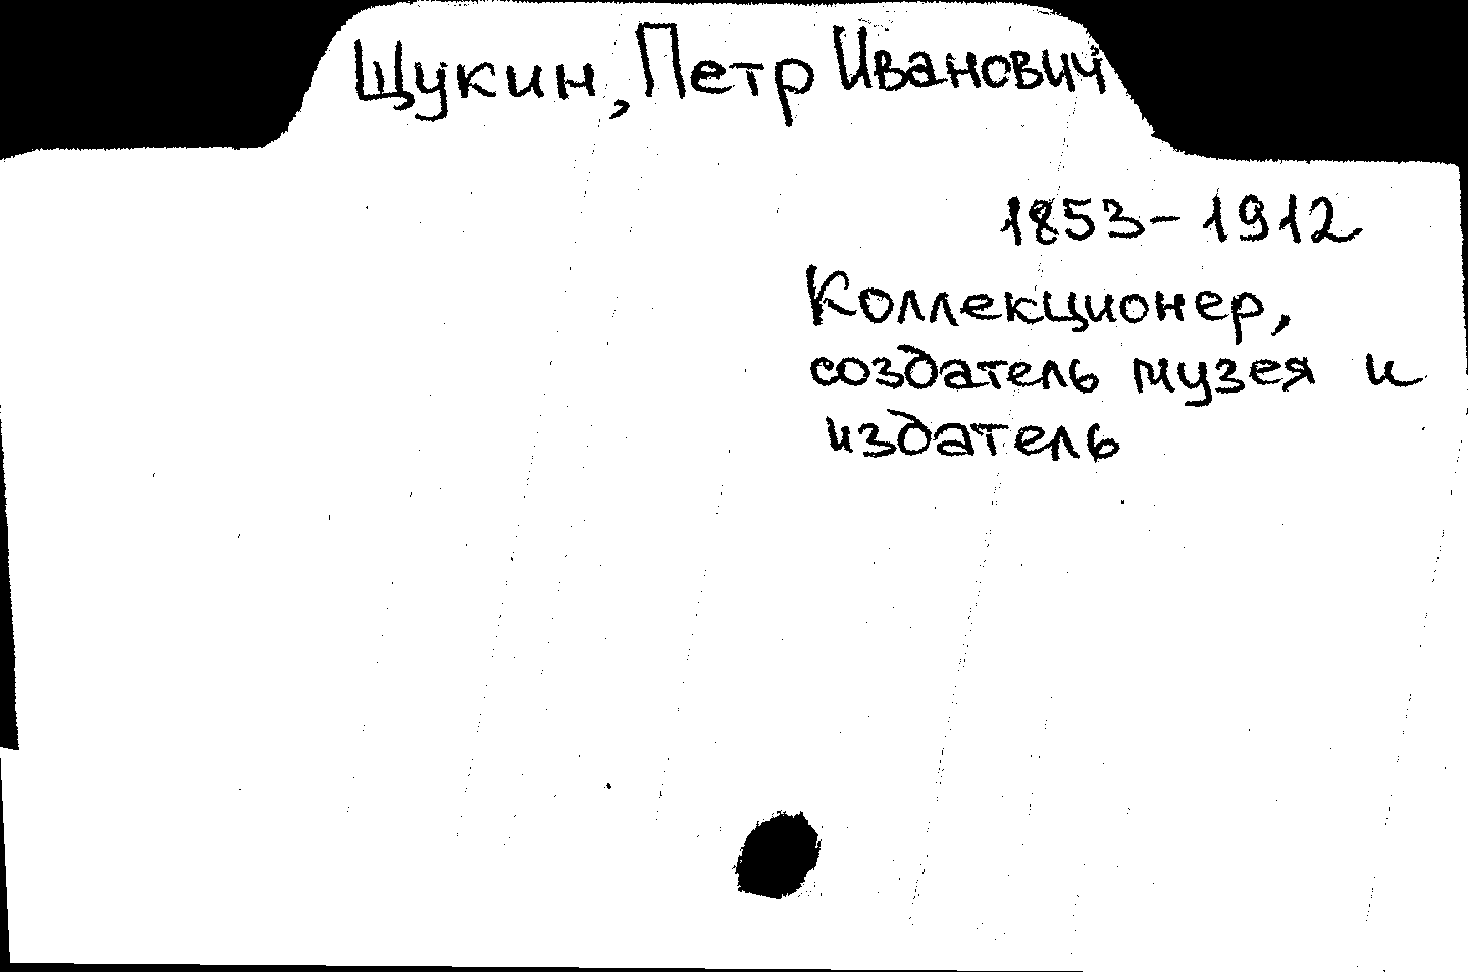 Щукин, Петр Иванович
1853-1912
Коллекционер,
создатель музея и
издатель